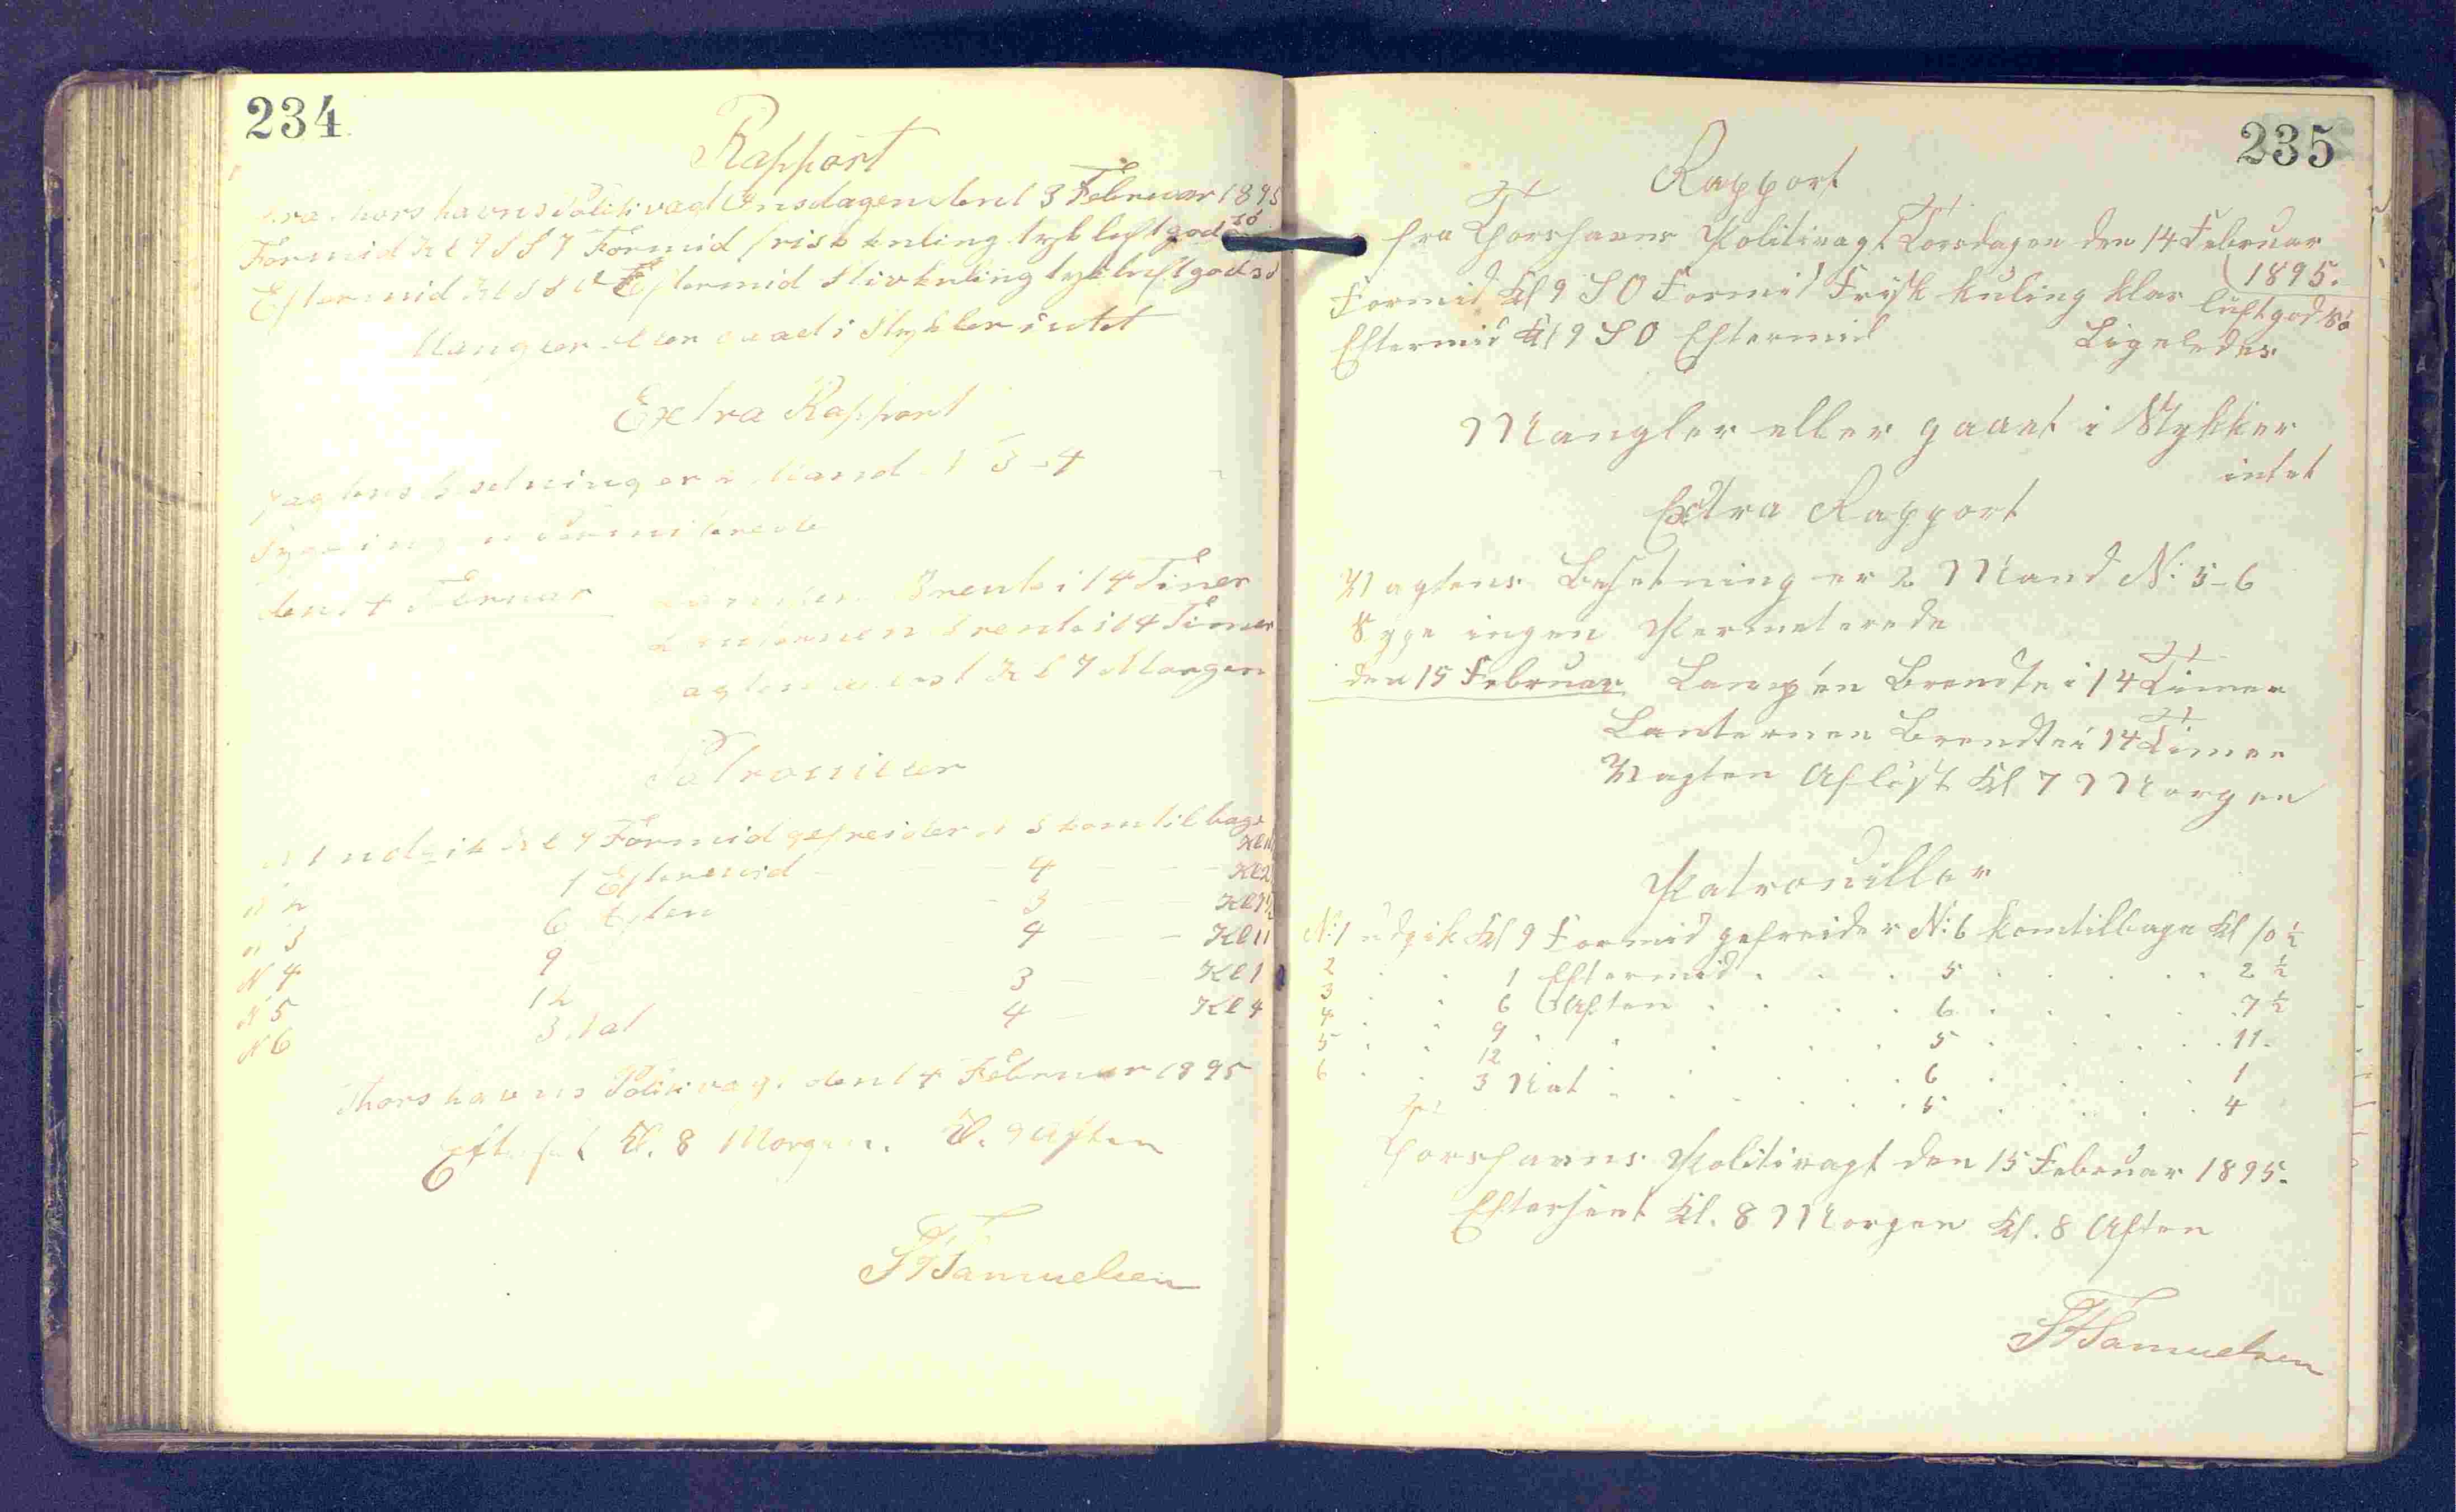 234
Rapport
fra Thorshavns Politivagt Onsdagen den 13 Februar 1895
Formid Kl 9 Formid frisk kuling tyk luft god sö
Eftermid Kl Eftermid Stivkuling tyk luft god sö
Mangler eller gaaet i Stykker intet
Extra Rapport
Vagtens Besetning er 2 Mand N 3-4
Syge ingen Permiterede
den 14 Februar Lampen Brente i 14 Timer
Lanternen Brente i 14 Timer
Vagten Aflöst Kl 7 Morgen
Patrouiller
N 1 udgik Kl 9 Formid gefreider N 3 kom tilbage
Kl
N 2 1 Eftermid 4 Kl 2
N 3 6 Aften 3 Kl 7½
N 4 9 4 Kl 11
N 5 12 3 Kl 1
N 6 3 Nat 4 Kl 4
Thorshavns Politivagt den 14 Februar 1895
Efterset Kl. 8 Morgen. Kl. 9 Aften
Samuelsen
235
Rapport
fra Thorshavns Politivagt Torsdagen den 14 Februar
1895.
Formid Kl 9 SO Formid Frisk Kuling klar luft god Sö
Eftermid Kl 9 SO Eftermid Ligeledes
Mangler eller gaaet i Stykker
intet
Extra Rapport
Vagtens Besetning er 2 Mand N: 5-6
Syge ingen Permeterede
den 15 Februar Lampen Brendte i 14 Timer
Lanternen Brendte i 14 Timer
Vagten Aflöst Kl 7 Morgen
Patrouiller
N: 1 udgik Kl 9 Formid gefreider N: 6 kom tilbage Kl 10 ½
2 " " 1 Eftermid " " 5 " " 2 ½
3 " " 6 Aften " " 6 " " 7 ½
4 " " 9 " " 5 " " 11
5 " " 12 " " 6 " " 1
6 " " 3 Nat " " 5 " " 4
Thorshavns Politivagt den 15 Februar 1895.
Efterseet Kl. 8 Morgen Kl. 8 Aften
Samuelsen